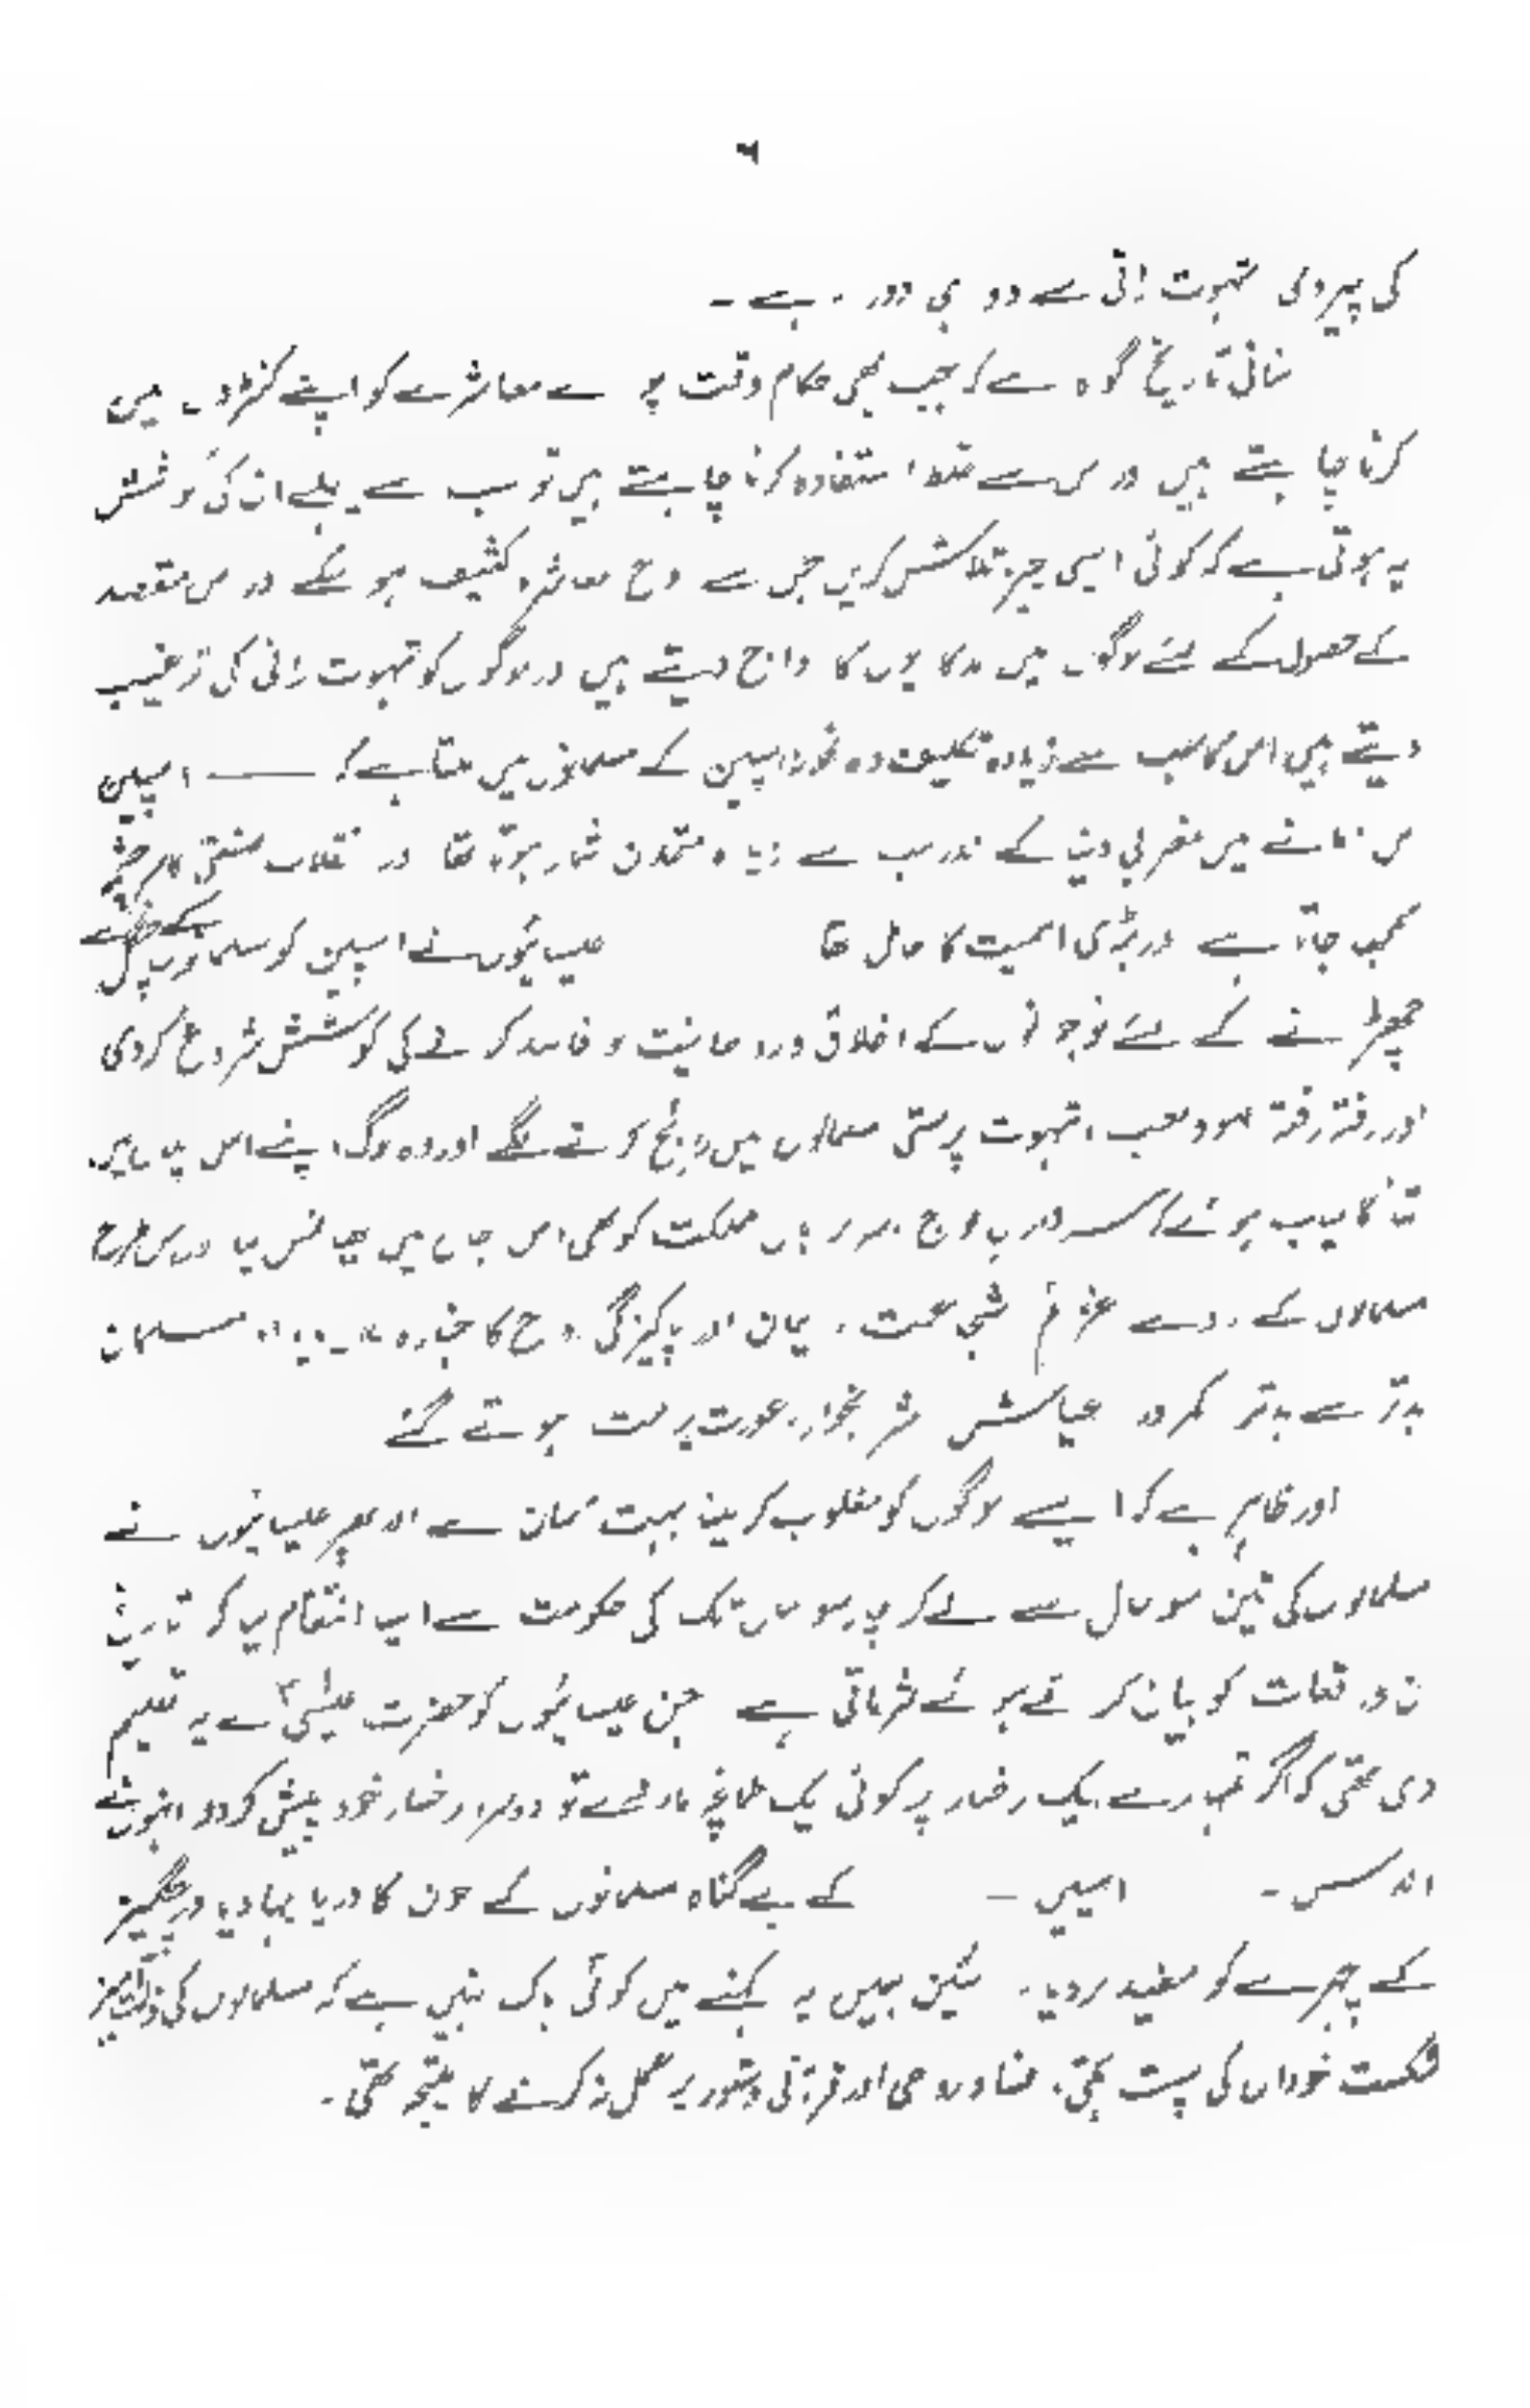 ۶
کی پیروی شہوت رانی سے دو ہی دور ہے۔
انسانی تاریخ گواہ ہے کہ جب بھی حکام وقت چاہتے معاشرے کو اپنے کنٹرول میں
کرنا چاہتے ہیں اور اس سے غلط استفادہ کرنا چاہتے ہیں تو سب سے پہلے ان کی کوشش
یہ ہوتی ہے کہ کوئی ایسی چیز تلاش کریں جس سے روح معاشرہ کثیف ہو سکے اور اس مقصد
کے حصول کے لئے لوگوں میں بدکاریوں کا رواج دیتے ہیں اور لوگوں کو شہوت رانی کی ترغیب
دیتے ہیں اس کا سب سے زیادہ تکلیف دہ نمونہ اسپین کے مسلمانوں میں ملتا ہے کہ —— اسپین
اس زمانے میں مغربی دنیا کے اندر سب سے زیادہ متمدن شمار ہوتا تھا اور انقلاب صنعتی کا سرچشمہ
سمجھا جاتا ہے اور بڑی اہمیت کا حامل تھا عیسائیوں نے اسپین کو مسلمانوں کے چنگل سے
چھڑانے کے لئے نوجوانوں کے اخلاق اور روحانیت کو فاسد کرنے کی کوشش شروع کر دی
اور رفتہ رفتہ لہو و لعب، شہوت پرستی مسلمانوں میں رائج ہونے لگے اور وہ لوگ اپنے اس پلان میں
اتنا کامیاب ہوئے کہ سرداران افواج اور سربراہان مملکت کو بھی اس جال میں پھانس لیا اور اس طرح
مسلمانوں کے ارادے عزم شجاعت، ایمان اور پاکیزگی روح کا جنازہ نکال دیا اور مسلمان
بدتر سے بدتر کمزور عیاش شرابخوار، عورت پرست ہوتے گئے
اور ظاہر ہے کہ ایسے لوگوں کو مغلوب کر لینا بہت آسان ہے اور پھر عیسائیوں نے
مسلمانوں کی تین سو سال سے لے کر چار سو سال تک کی حکومت سے ایسا انتقام لیا کہ تاریخ
ان واقعات کو بیان کرتے ہوئے شرماتی ہے جن عیسائیوں کو حضرت عیسیٰؑ نے یہ تعلیم
دی تھی کہ اگر تمہارے ایک رخسار پر کوئی ایک طمانچہ مارے تو دوسرا رخسار خود پیش کر دو انہوں نے
اندلس۔ اسپین — کے بے گناہ مسلمانوں کے خون کا دریا بہا دیا اور چنگیز
کے چہرے کو سفید کر دیا۔ لیکن ہمیں یہ کہنے میں کوئی باک نہیں ہے کہ مسلمانوں کی ذلت آمیز
شکست خود ان کی پست ہمتی، فساد روحی اور قرآنی دستور پر عمل نہ کرنے کا نتیجہ تھی۔